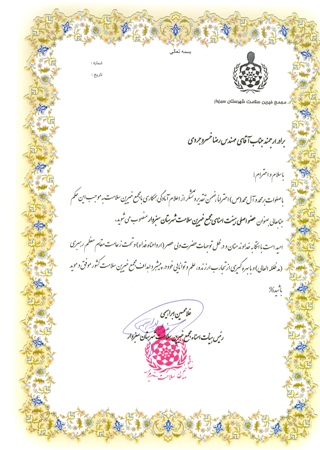 بسمه تعالی
شماره :
تاریخ :
مجمع خیرین سلامت شهرستان سبزوار
برادر ارجمند جناب آقای مهندس رضا خسروجردی
با سلام و احترام؛
با صلوات بر محمد و آل محمد (ص) و احترام، ضمن تقدیر و تشکر از اعلام آمادگی همکاری با مجمع خیرین سلامت، به موجب این حکم
جنابعالی بعنوان عضو اصلی هیئت امنای مجمع خیرین سلامت شهرستان سبزوار منصوب می شوید.
امید است با اتکا به خداوند منان و در ظل توجهات حضرت ولی عصر (ارواحنا فداه) و تحت زعامت مقام معظم رهبری
(مدظله العالی) و با بهره گیری از تجارب ارزنده، علم و توانایی خود در پیشبرد اهداف مجمع خیرین سلامت کشور موفق و موید
باشید.
غلامحسین ابراهیمی
رئیس هیات امناء مجمع خیرین سلامت شهرستان سبزوار